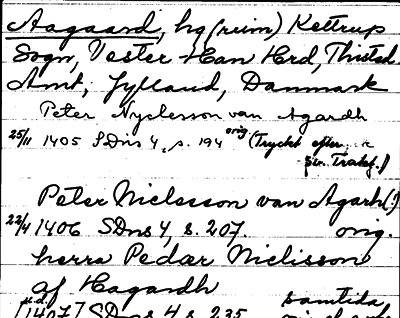 Aagaard, hg (ruin) Kettrup
Sogn, Vester Han Hrd, Thisted
Amt, Jylland, Danmark
Peter Nyclesson van Agardh
25/11 1405 SDns 4, s. 194 orig (Tryckt efter
sv. Traktf.)
Peter Niclesson van Agarh(!)
22/4 1406 SDns 4, s. 207. orig.
herra Pedær Niclisson
af Hagardh
u.d. [1407] SDns 4 s 235 samtida